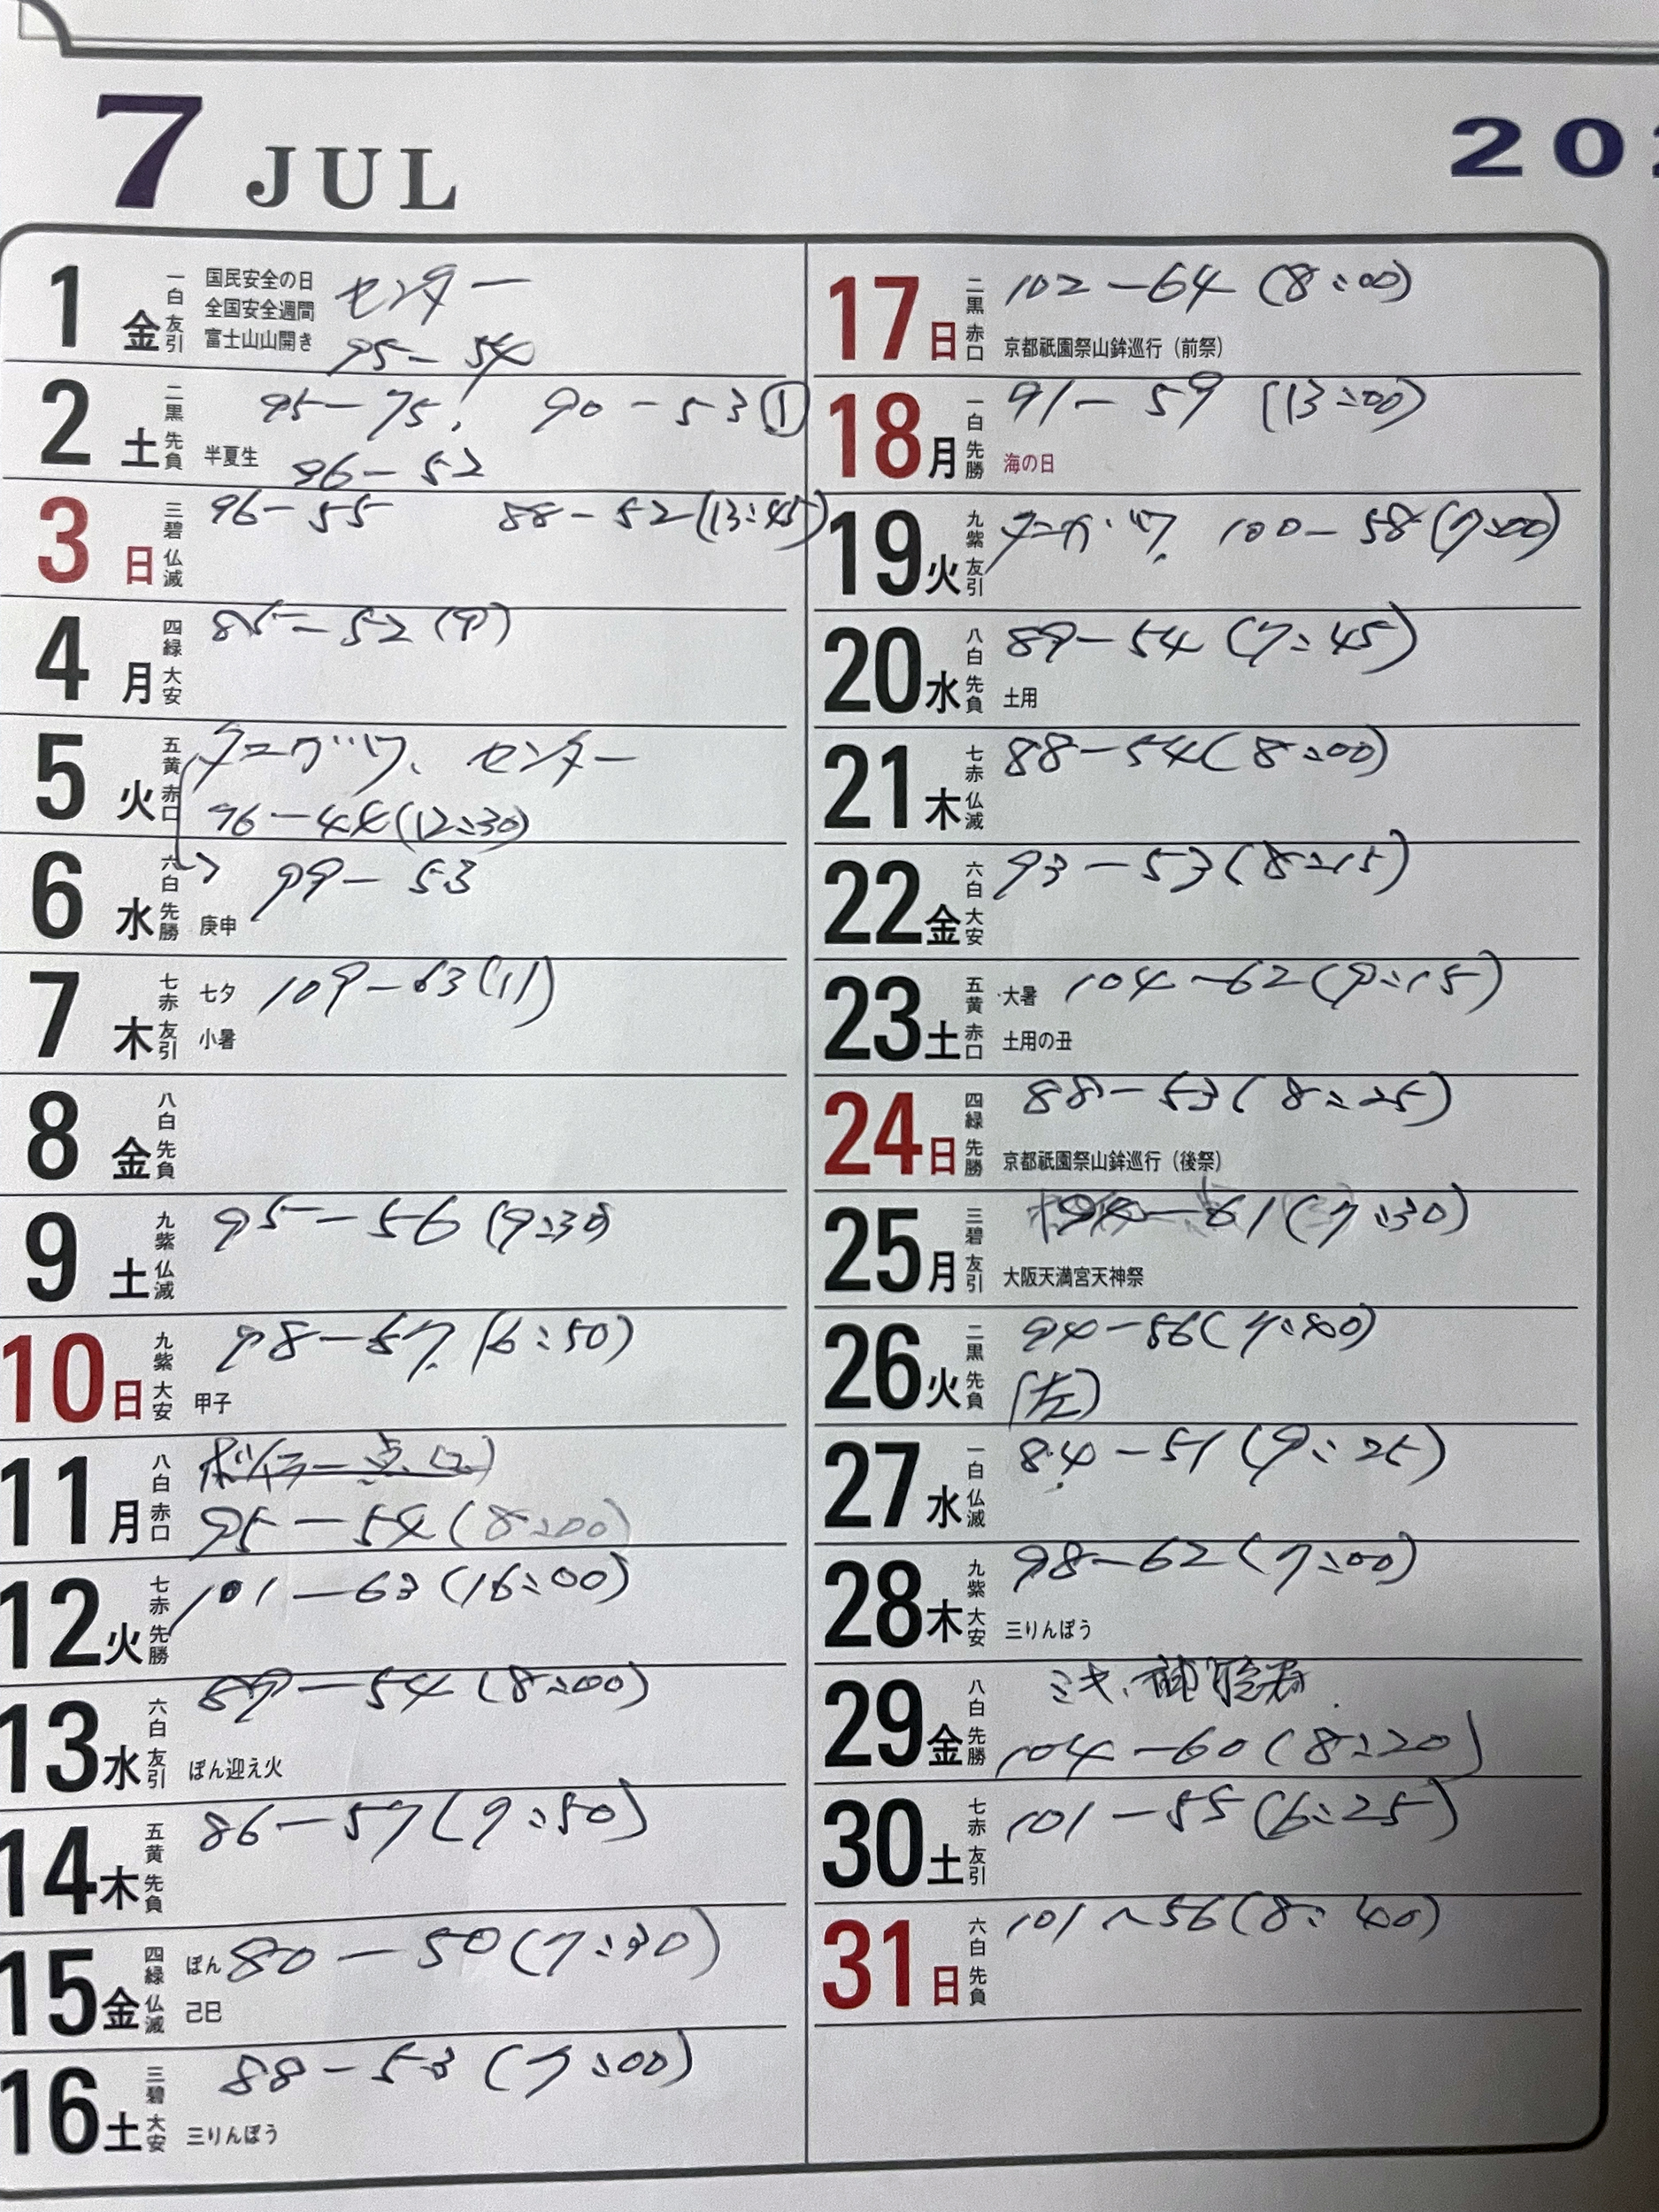 7 JUL
202
1 金 一白 友引 国民安全の日 センター
全国安全週間
富士山山開き 95-54
2 土 二黒 先負 95-75! 90-53①
半夏生 96-52
3 日 三碧 仏滅 96-55 88-52(13:45)
4 月 四緑 大安 85-52(9)
5 火 五黄 赤口 センター
96-44(12:30)
6 水 六白 先勝 庚申 99-53
7 木 七赤 友引 七夕 109-63(11)
小暑
8 金 八白 先負
9 土 九紫 仏滅 95-56(9:30)
10 日 九紫 大安 98-57.(6:50)
甲子
11 月 八白 赤口
95-54(8:00)
12 火 七赤 先勝 101-63(16:00)
13 水 六白 友引 89-54(8:00)
ぼん迎え火
14 木 五黄 先負 86-57(9:50)
15 金 四緑 仏滅 ぼん 80-50(7:30)
己巳
16 土 三碧 大安 88-53(7:00)
三りんぼう
17 日 二黒 赤口 102-64(8:00)
京都祇園祭山鉾巡行(前祭)
18 月 一白 先勝 91-59(13:00)
海の日
19 火 九紫 友引 100-58(7:00)
20 水 八白 先負 89-54(7:45)
土用
21 木 七赤 仏滅 88-54(8:00)
22 金 六白 大安 93-53(8:15)
23 土 五黄 赤口 大暑 104-62(9:15)
土用の丑
24 日 四緑 先勝 88-53(8:25)
京都祇園祭山鉾巡行(後祭)
25 月 三碧 友引 61(7:30)
大阪天満宮天神祭
26 火 二黒 先負 94-56(7:40)
(左)
27 水 一白 仏滅 84-51(9:25)
28 木 九紫 大安 98-62(7:00)
三りんぼう
29 金 八白 先勝 ミキ、
104-60(8:20)
30 土 七赤 友引 101-55(6:25)
31 日 六白 先負 101~56(8:40)